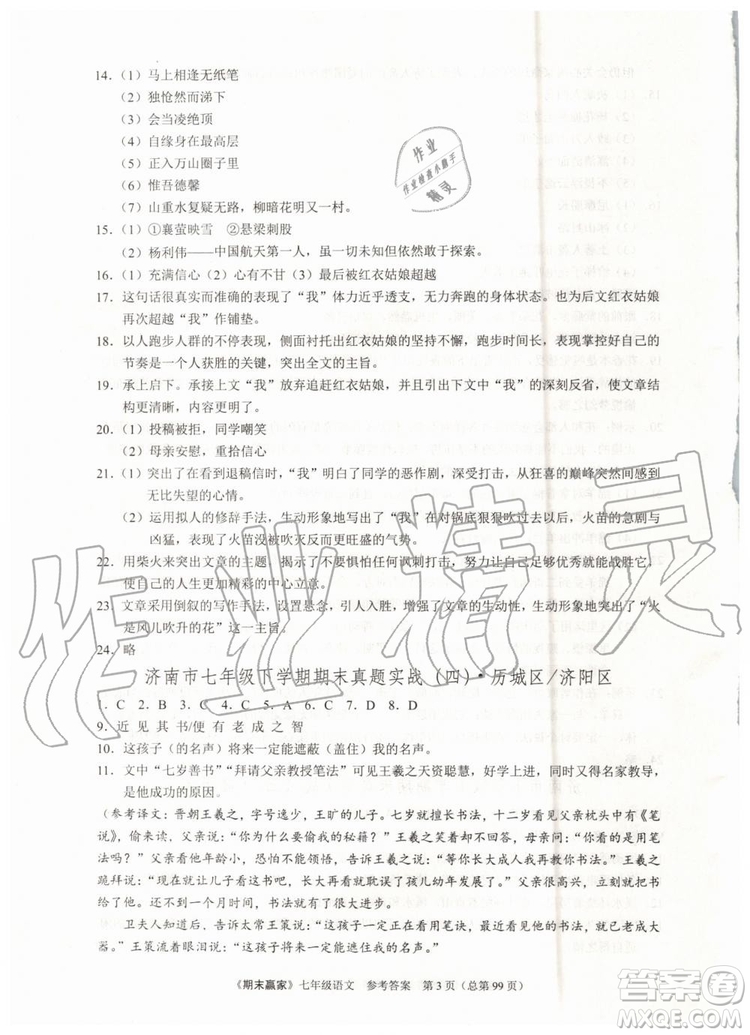 14.（1）马上相逢无纸笔
（2）独怆然而涕下
（3）会当凌绝顶
（4）自缘身在最高层
（5）正入万山圈子里
（6）惟吾德馨
（7）山重水复疑无路，柳暗花明又一村。
15.（1）①囊萤映雪 ②悬梁刺股
（2）杨利伟——中国航天第一人，虽一切未知却敢于探索。
16.（1）充满信心（2）心有不甘（3）最后被红衣姑娘超越
17. 这句话很真实而准确的表现了“我”体力近乎透支，无力奔跑的身体状态。为后文红衣姑娘
再次超越“我”作铺垫。
18. 以人跑步人群的不停表现，侧面衬托出红衣姑娘的坚持不懈，跑步时按照适合自己的
节奏是一个人获胜的关键，突出全文的主旨。
19. 承上启下。承接上文“我”放弃追赶红衣姑娘并引出下文中“我”的深刻反省，使文章结
构更清晰，内容更深入。
20.（1）投稿被拒，同学嘲笑
（2）母亲安慰，重拾信心
21.（1）突出了在看到退稿信时，“我”明白了同学的恶作剧，深受打击，从狂喜的巅峰突然间感到
无比失望的心情。
（2）运用拟人的修辞手法，生动形象地写出了“我”在对锅底狠狠吹过去以后，火苗的急剧与
凶猛，表现了被吹灭反而更旺盛的气势。
22. 用柴火来突出文章的主题，揭示了不要怕任何讽刺打击，努力让自己足够优秀就能战胜它，
使自己的人生更加精彩的中心立意。
23. 文章采用倒叙的写作手法，巧设悬念，引人入胜，增强了文章的生动性，生动形象地突出了“火
是风儿吹升的花”这一主旨。
24. 略
济南市七年级下学期期末真题实战（四）·历城区/济阳区
1. C 2. B 3. C 4. C 5. A 6. C 7. D 8. D
9. 近 见 其 书/便 有 老 成 之 智
10. 这孩子（的名声）将来一定能遮蔽（盖住）我的名声。
11. 文中“七岁善书”“拜请父亲教授笔法”可见王羲之天资聪慧，并且好学，又得名家教导，
是他成功的原因。
（参考译文：晋朝王羲之，字号逸少，王旷的儿子。七岁就擅长书法，十二岁看见父亲枕头中有《笔
说》，偷来读。父亲说：“你为什么要偷我的秘籍？”王羲之笑着却不回答，母亲问：“你看的是用笔
法吗？”父亲看他年少，恐怕不能领悟，告诉王羲之说：“等你长大成人我教你书法。”王羲之
跪拜说：“现在就让孩儿使用它吧，等到长大成人再看就耽误了孩儿幼年发展。”父亲很高兴，于是就
给了他。还不到一个月时间，书法就有了很大进步。
卫夫人知道后，告诉太常王策说：“这孩子一定正在看用笔诀，近来看他的书法，就已有老成大器之
风。”王策流着眼泪说：“这孩子将来一定能遮住我的名声。”）
《期末赢家》七年级语文 参考答案 第3页（总第99页）
作业
作业检查小助手
精灵
作业精灵
作业精灵